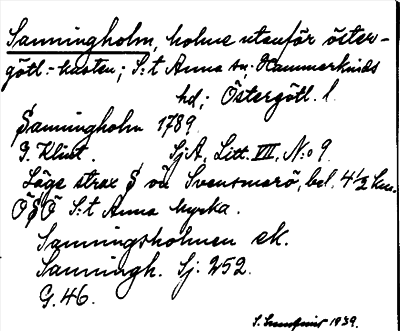 Sanningholm, holme utanför öster-
götl.-kusten; S:t Anna sn; Hammarkinds
hd; Östergötl. l.
Sanningholm 1789.
G. Klint. SjA, Litt. VII, N:o 9.
Läge strax S ön Svensmarö, bel. 4½ km.
ÖSÖ S:t Anna kyrka.
Sanningsholmen ek.
Sanningh. Sj. 252.
G. 46.
1939.